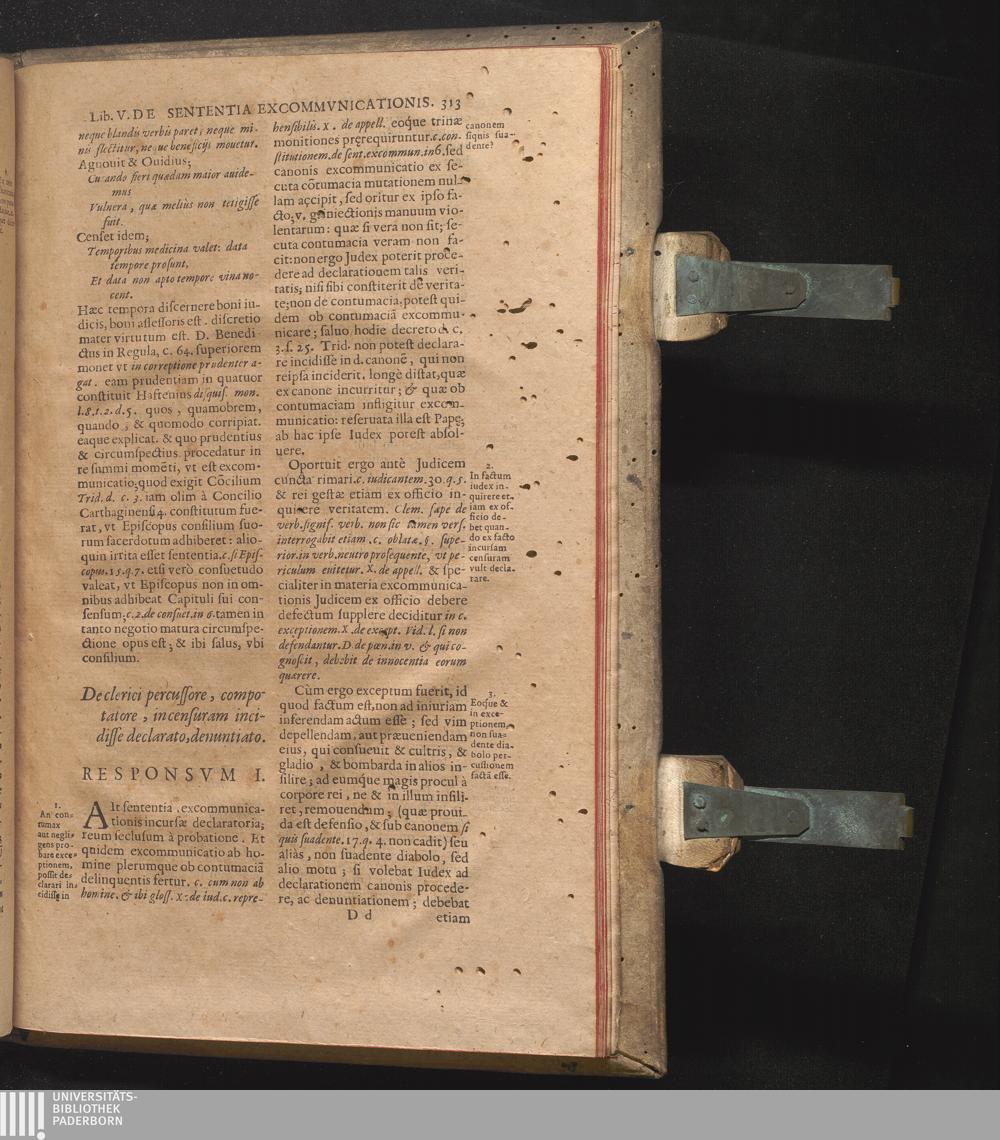 Lib. V. DE SENTENTIA EXCOMMVNICATIONIS. 313
neque blandis verbis paret; neque mi-
nis flectitur, neque beneficijs mouetur.
Agnouit & Ouidius;
Curando fieri quædam maior auide-
mus
Vulnera, quæ meliùs non tetigisse
fuit.
Censet idem;
Temporibus medicina valet: data
tempore prosunt,
Et data non apto tempore vina no-
cent.
Hæc tempora discernere boni iu-
dicis, boni assessoris est. discretio
mater virtutum est. D. Benedi
ctus in Regula, c. 64. superiorem
monet vt in correptione prudenter a-
gat. eam prudentiam in quatuor
constituit Haftenius disquis. mon.
l.8.t.2.d.5. quos, quamobrem,
quando, & quomodo corripiat.
eaque explicat. & quo prudentius
& circumspectius procedatur in
re summi momēti, vt est excom-
municatio; quod exigit Cōcilium
Trid. d. c. 3. iam olim à Concilio
Carthaginensi 4. constitutum fue-
rat, vt Episcopus consilium suo-
rum sacerdotum adhiberet: alio-
quin irrita esset sententia. c. si Epis-
copus. 15. q. 7. etsi verò consuetudo
valeat, vt Episcopus non in om-
nibus adhibeat Capituli sui con-
sensum; c. 2. de consuet. in 6. tamen in
tanto negotio matura circumspe-
ctione opus est; & ibi salus, vbi
consilium.
De clerici percussore, compo-
tatore, in censuram inci-
disse declarato, denuntiato.
RESPONSVM I.
1.
An con-
tumax
aut negli-
gens pro-
bare exce-
ptionem,
possit de-
clarari in-
cidisse in
Ait sententia excommunica-
tionis incursæ declaratoria;
reum seclusum à probatione. Et
quidem excommunicatio ab ho-
mine plerumque ob contumaciā
delinquentis fertur. c. cum non ab
homine. & ibi gloss. X. de iud. c. repre-
hensibilis. X. de appell. eoque trinæ
monitiones prerequiruntur. c. con-
stitutionem. de sent. excommun. in 6. sed
canonis excommunicatio ex se-
cuta cōtumacia mutationem nul-
lam accipit, sed oritur ex ipso fa-
cto; v. g. iniectionis manuum vio-
lentarum: quæ si vera non sit; se-
cuta contumacia veram non fa-
cit: non ergo Judex poterit proce-
dere ad declarationem talis veri-
tatis; nisi sibi constiterit de verita-
te; non de contumacia. potest qui-
dem ob contumaciā excommu-
nicare; saluo hodie decreto d. c.
3. s. 25. Trid. non potest declara-
re incidisse in d. canonē, qui non
reipsa inciderit. longè distat, quæ
ex canone incurritur; & quæ ob
contumaciam infligitur excom-
municatio: reseruata illa est Papę;
ab hac ipse Iudex potest absol-
uere.
Oportuit ergo antè Judicem
cuncta rimari. c. iudicantem. 30. q. 5.
& rei gestæ etiam ex officio in-
quirere veritatem. Clem. sæpe de
verb. signif. verb. non sic tamen vers.
interrogabit etiam. c. oblatæ. §. supe-
rior. in verb. neutro prosequente, vt pe-
riculum euitetur. X. de appell. & spe-
cialiter in materia excommunica-
tionis Judicem ex officio debere
defectum supplere deciditur in c.
exceptionem. X. de except. Vid. l. si non
defendantur. D. de pœn. in v. & qui co-
gnoscit, debebit de innocentia eorum
quærere.
Cùm ergo exceptum fuerit, id
quod factum est, non ad iniuriam
inferendam actum esse; sed vim
depellendam, aut præueniendam
eius, qui consueuit & cultris, &
gladio, & bombarda in alios in-
silire; ad eumque magis procul à
corpore rei, ne & in illum insili-
ret, remouendum; (quæ proui-
da est defensio, & sub canonem si
quis suadente. 17. q. 4. non cadit) seu
aliàs, non suadente diabolo, sed
alio motu; si volebat Iudex ad
declarationem canonis procede-
re, ac denuntiationem; debebat
D d
etiam
canonem
siquis sua-
dente?
2.
In factum
iudex in-
quirere et-
iam ex of-
ficio de-
bet quan-
do ex facto
incursam
censuram
vult decla-
rare.
3.
Eoque &
in exce-
ptionem,
non sua-
dente dia-
bolo per-
cussionem
factā esse.
UNIVERSITÄTS-
BIBLIOTHEK
PADERBORN